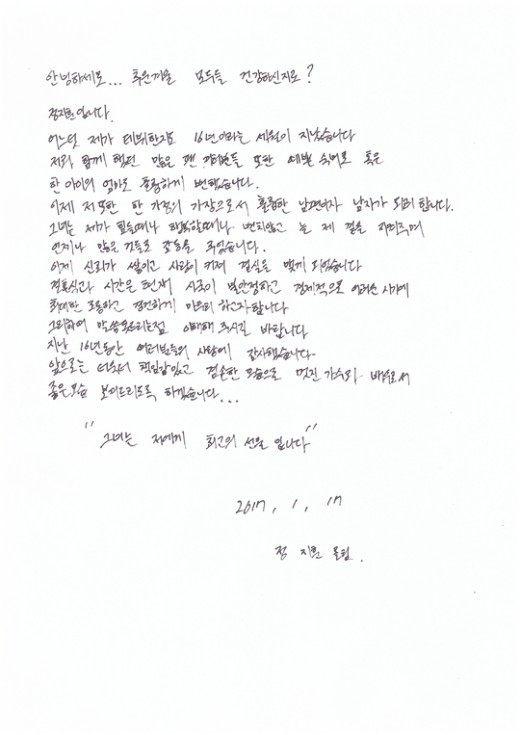 안녕하세요... 추운겨울 모두들 건강하신지요?
정지훈입니다.
어느덧 제가 데뷔한지도 16년이라는 세월이 지났습니다
저와 함께 했던 많은 팬 여러분들 또한 예쁜 숙녀로 혹은
한 아이의 엄마로 훌륭하게 변했습니다.
이제 저 또한 한 가정의 가장으로서 훌륭한 남편이자 남자가 되려 합니다.
그녀는 제가 힘들때나 행복할때나 변치않고 늘 제 곁을 지켜주며
언제나 많은 것들로 감동을 주었습니다.
이제 신뢰가 쌓이고 사랑이 커져 결실을 맺게 되었습니다
결혼식과 시간은 현재 시국이 불안정하고 경제적으로 어려운 시기에
최대한 조용하고 경건하게 치르려 하고자 합니다
그리하여 말씀못드리는점 이해해 주시길 바랍니다
지난 16년동안 여러분들의 사랑에 감사했습니다
앞으로는 더욱더 책임감있고 겸손한 모습으로 멋진 가수와 배우로서
좋은모습 보여드리도록 하겠습니다...
"그녀는 저에게 최고의 선물 입니다"
2017, 1, 17
정 지훈 올림.